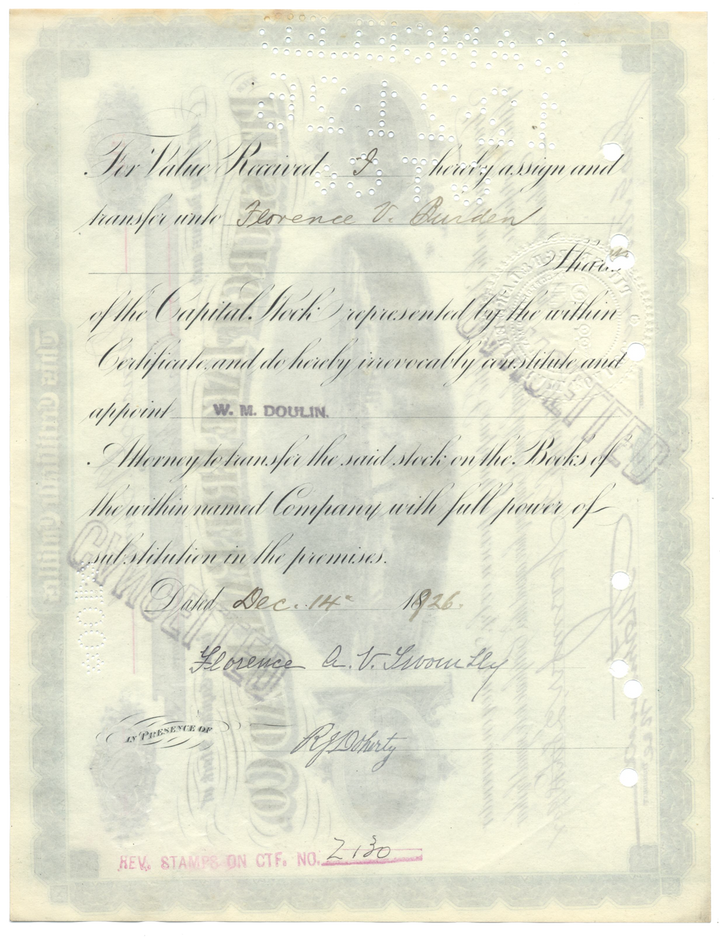 For Value Received I hereby assign and
transfer unto Florence V. Burden
Shares
of the Capital Stock represented by the within
Certificate and do hereby irrevocably constitute and
appoint W. M. DOULIN.
Attorney to transfer the said stock on the Books of
the within named Company with full power of
substitution in the premises.
Dated Dec. 14 1926.
Florence A. V. Twombly
IN PRESENCE OF R J Doherty
REV. STAMPS ON CTF. NO. Z130